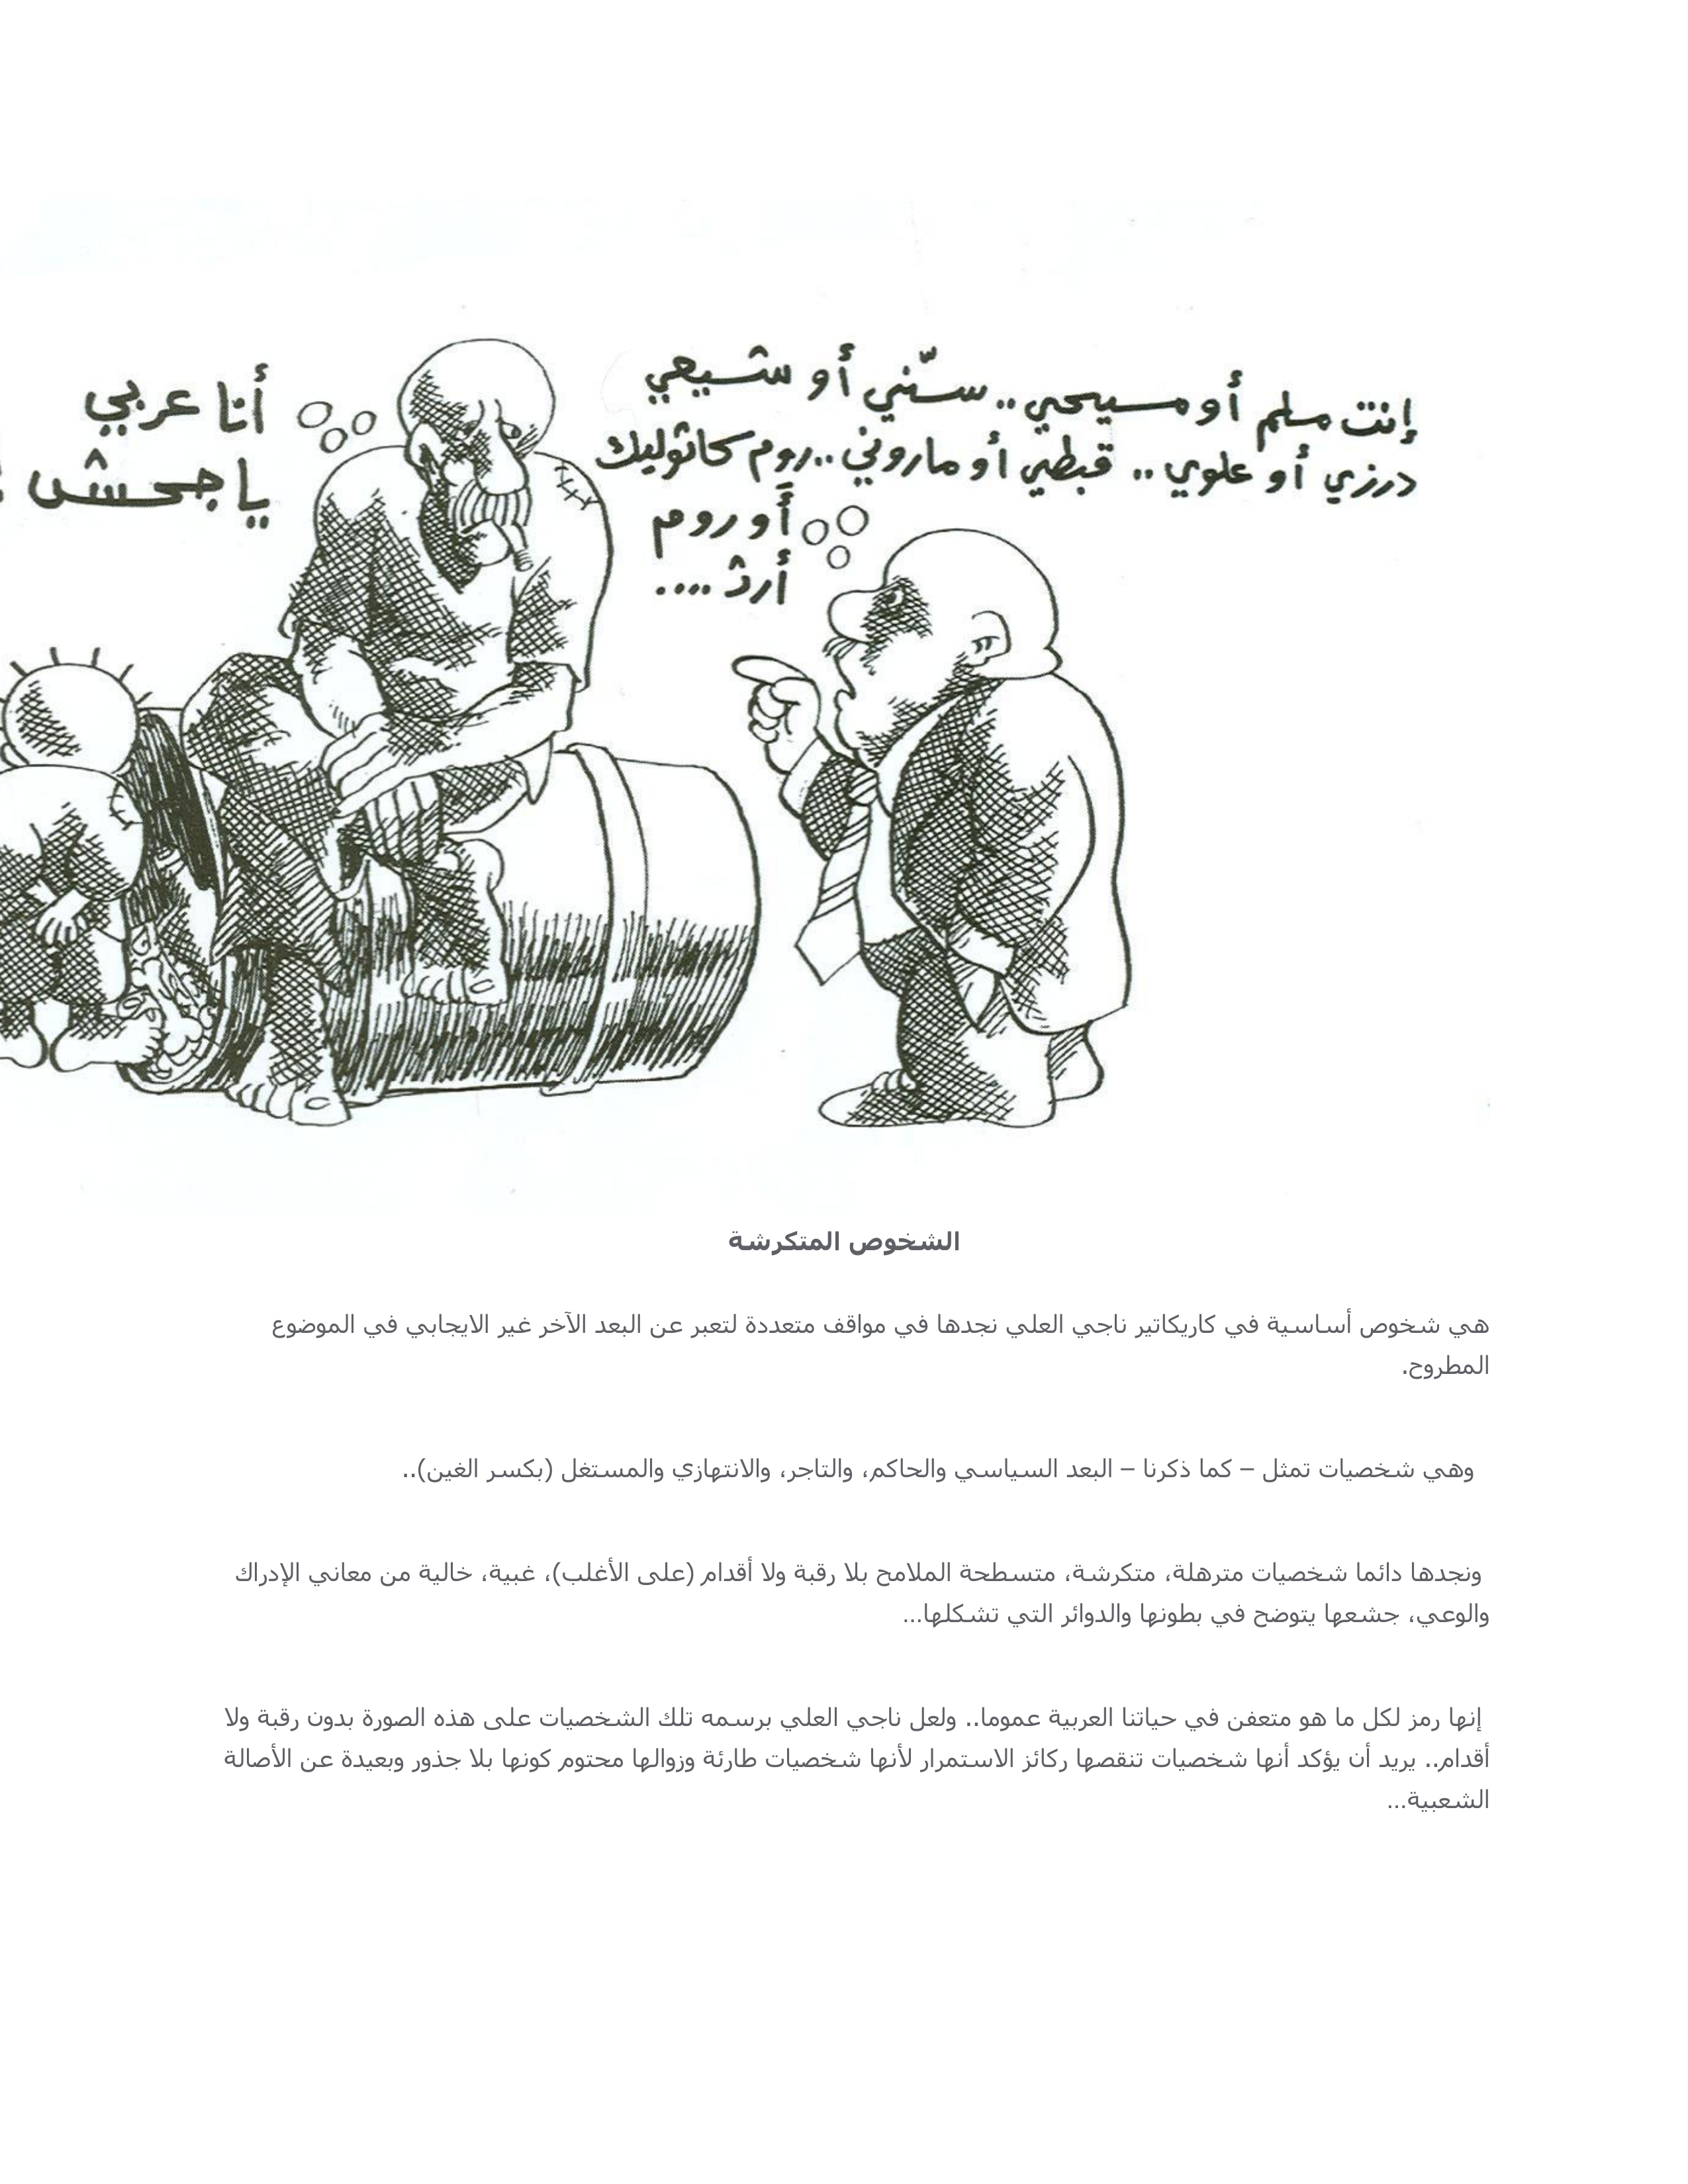 إنت مسلم أو مسيحي .. سنّي أو شيعي
درزي أو علوي .. قبطي أو ماروني .. روم كاثوليك
أو روم
أرث ....
أنا عربي
يا جحش
الشخوص المتكرشة
هي شخوص أساسية في كاريكاتير ناجي العلي نجدها في مواقف متعددة لتعبر عن البعد الآخر غير الايجابي في الموضوع
المطروح.
وهي شخصيات تمثل – كما ذكرنا – البعد السياسي والحاكم، والتاجر، والانتهازي والمستغل (بكسر الغين)..
ونجدها دائما شخصيات مترهلة، متكرشة، متسطحة الملامح بلا رقبة ولا أقدام (على الأغلب)، غبية، خالية من معاني الإدراك
والوعي، جشعها يتوضح في بطونها والدوائر التي تشكلها...
إنها رمز لكل ما هو متعفن في حياتنا العربية عموما.. ولعل ناجي العلي برسمه تلك الشخصيات على هذه الصورة بدون رقبة ولا
أقدام.. يريد أن يؤكد أنها شخصيات تنقصها ركائز الاستمرار لأنها شخصيات طارئة وزوالها محتوم كونها بلا جذور وبعيدة عن الأصالة
الشعبية...